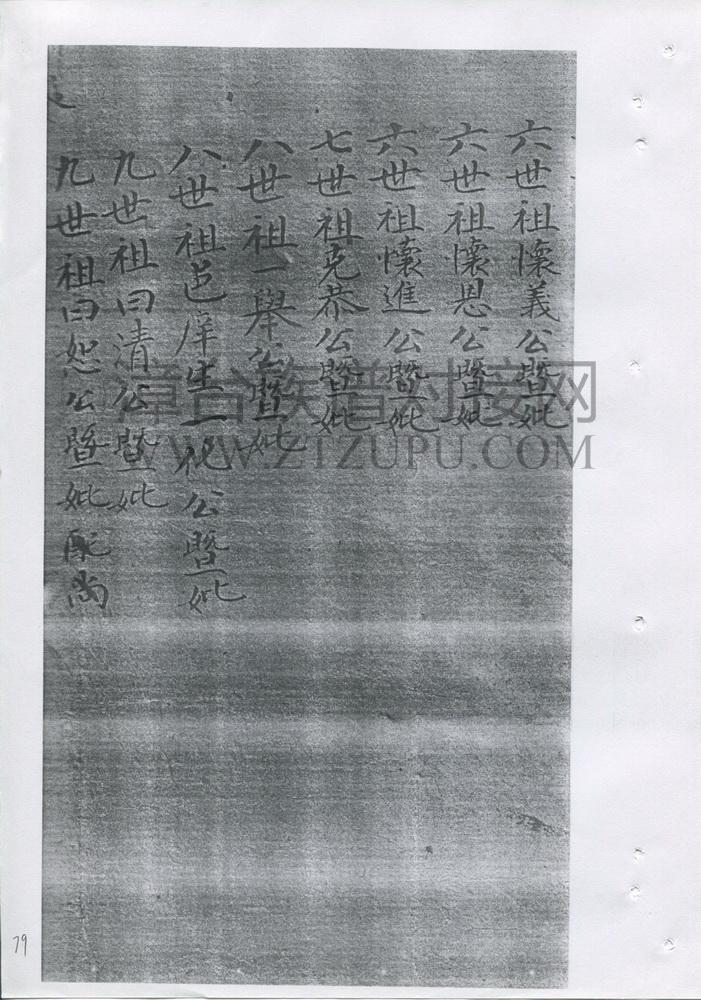 六世祖懷義公暨妣
六世祖懷恩公暨妣
六世祖懷進公暨妣
七世祖克恭公暨妣
八世祖一舉公暨妣
八世祖邑庠生一化公暨妣
九世祖曰清公暨妣
九世祖曰恕公暨妣配尚
漳台族谱对接网
WWW.ZTZUPU.COM
79